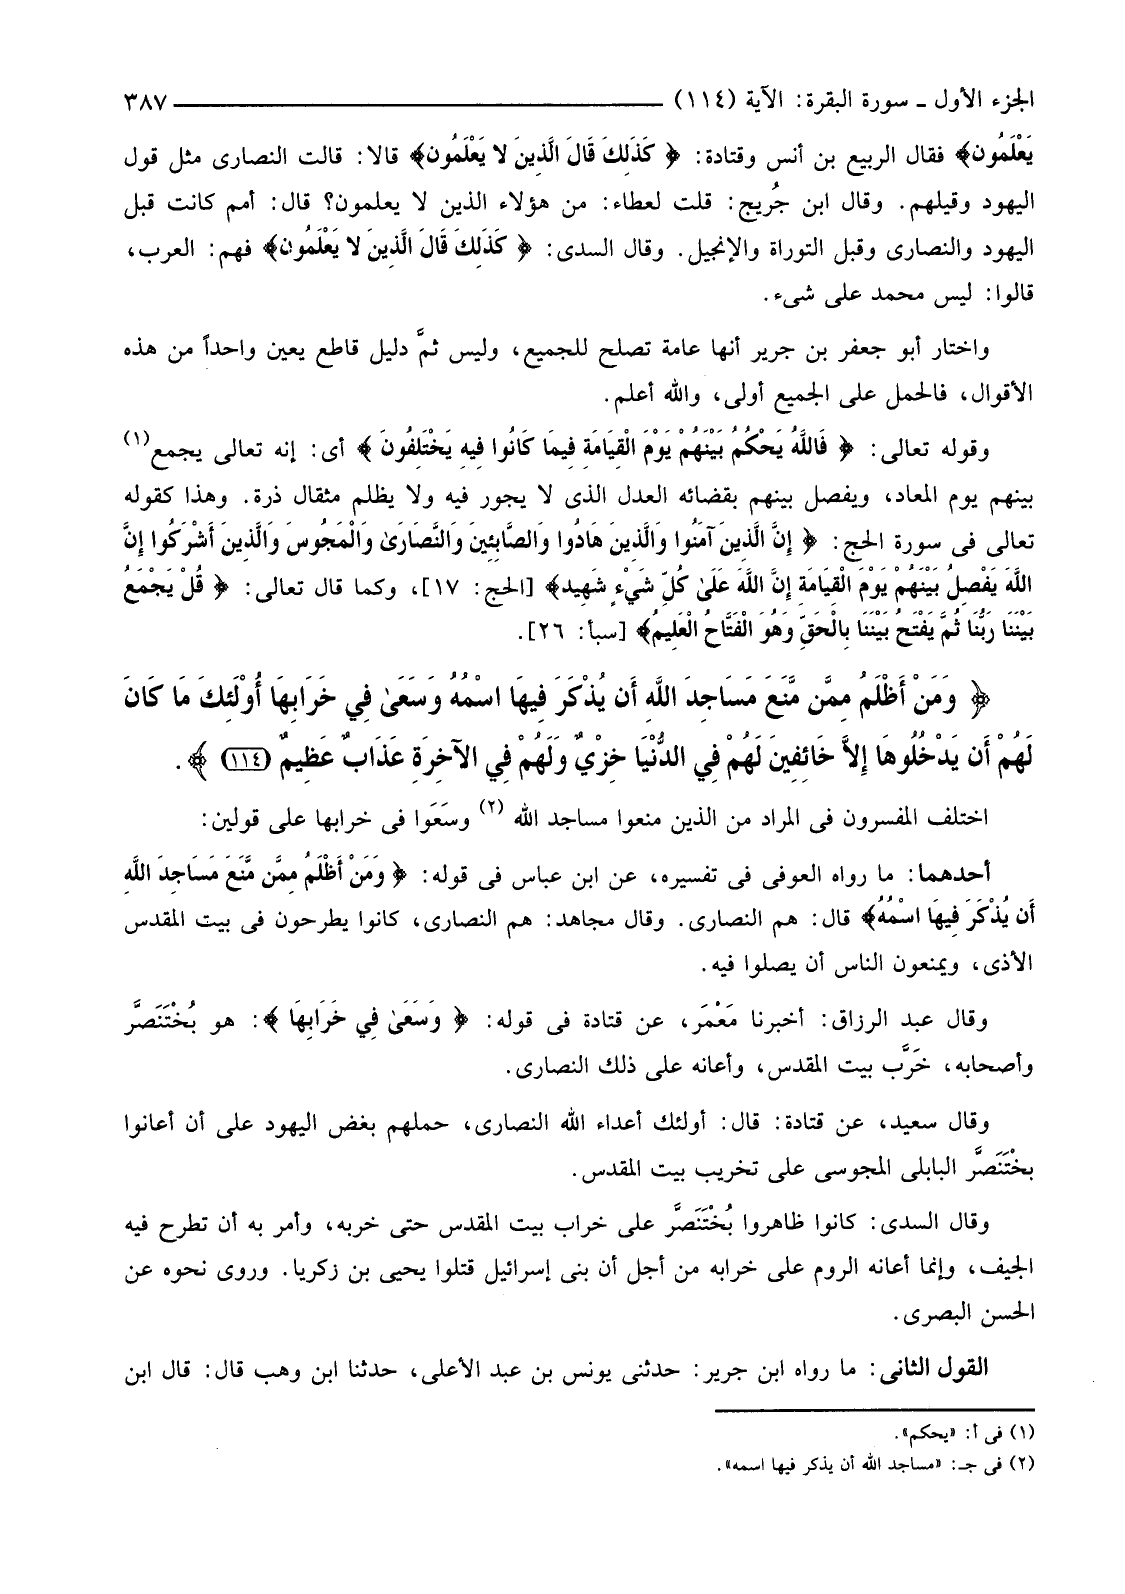 الجزء الأول ـ سورة البقرة: الآية (١١٤) ٣٨٧
يَعْلَمُون﴾ فقال الربيع بن أنس وقتادة: ﴿ كَذَلِكَ قَالَ الَّذِينَ لا يَعْلَمُون﴾ قالا: قالت النصارى مثل قول
اليهود وقيلهم. وقال ابن جُريج: قلت لعطاء: من هؤلاء الذين لا يعلمون؟ قال: أمم كانت قبل
اليهود والنصارى وقبل التوراة والإنجيل. وقال السدى: ﴿ كَذَلِكَ قَالَ الَّذِينَ لا يَعْلَمُون﴾ فهم: العرب،
قالوا: ليس محمد على شىء.
واختار أبو جعفر بن جرير أنها عامة تصلح للجميع، وليس ثمَّ دليل قاطع يعين واحداً من هذه
الأقوال، فالحمل على الجميع أولى، والله أعلم.
وقوله تعالى: ﴿ فَاللَّهُ يَحْكُمُ بَيْنَهُمْ يَوْمَ الْقِيَامَةِ فِيمَا كَانُوا فِيهِ يَخْتَلِفُونَ ﴾ أى: إنه تعالى يجمع(١)
بينهم يوم المعاد، ويفصل بينهم بقضائه العدل الذى لا يجور فيه ولا يظلم مثقال ذرة. وهذا كقوله
تعالى فى سورة الحج: ﴿ إِنَّ الَّذِينَ آمَنُوا وَالَّذِينَ هَادُوا وَالصَّابِئِينَ وَالنَّصَارَىٰ وَالْمَجُوسَ وَالَّذِينَ أَشْرَكُوا إِنَّ
اللَّهَ يَفْصِلُ بَيْنَهُمْ يَوْمَ الْقِيَامَةِ إِنَّ اللَّهَ عَلَىٰ كُلِّ شَيْءٍ شَهِيد﴾ [الحج: ١٧]، وكما قال تعالى: ﴿ قُلْ يَجْمَعُ
بَيْنَنَا رَبُّنَا ثُمَّ يَفْتَحُ بَيْنَنَا بِالْحَقِّ وَهُوَ الْفَتَّاحُ الْعَلِيمُ﴾ [سبأ: ٢٦].
﴿ وَمَنْ أَظْلَمُ مِمَّن مَّنَعَ مَسَاجِدَ اللَّهِ أَن يُذْكَرَ فِيهَا اسْمُهُ وَسَعَىٰ فِي خَرَابِهَا أُوْلَئِكَ مَا كَانَ
لَهُمْ أَن يَدْخُلُوهَا إِلاَّ خَائِفِينَ لَهُمْ فِي الدُّنْيَا خِزْيٌ وَلَهُمْ فِي الآخِرَةِ عَذَابٌ عَظِيمٌ (١١٤) ﴾.
اختلف المفسرون فى المراد من الذين منعوا مساجد الله (٢) وسَعَوا فى خرابها على قولين:
أحدهما: ما رواه العوفى فى تفسيره، عن ابن عباس فى قوله: ﴿ وَمَنْ أَظْلَمُ مِمَّن مَّنَعَ مَسَاجِدَ اللَّهِ
أَن يُذْكَرَ فِيهَا اسْمُهُ﴾ قال: هم النصارى. وقال مجاهد: هم النصارى، كانوا يطرحون فى بيت المقدس
الأذى، ويمنعون الناس أن يصلوا فيه.
وقال عبد الرزاق: أخبرنا مَعْمَر، عن قتادة فى قوله: ﴿ وَسَعَىٰ فِي خَرَابِهَا ﴾: هو بُخْتَنَصَّر
وأصحابه، خَرَّب بيت المقدس، وأعانه على ذلك النصارى.
وقال سعيد، عن قتادة: قال: أولئك أعداء الله النصارى، حملهم بغض اليهود على أن أعانوا
بخْتَنَصَّر البابلى المجوسى على تخريب بيت المقدس.
وقال السدى: كانوا ظاهروا بُخْتَنَصَّر على خراب بيت المقدس حتى خربه، وأمر به أن تطرح فيه
الجيف، وإنما أعانه الروم على خرابه من أجل أن بنى إسرائيل قتلوا يحيى بن زكريا. وروى نحوه عن
الحسن البصرى.
القول الثانى: ما رواه ابن جرير: حدثنى يونس بن عبد الأعلى، حدثنا ابن وهب قال: قال ابن
(١) فى أ: «يحكم».
(٢) فى جـ: «مساجد الله أن يذكر فيها اسمه».